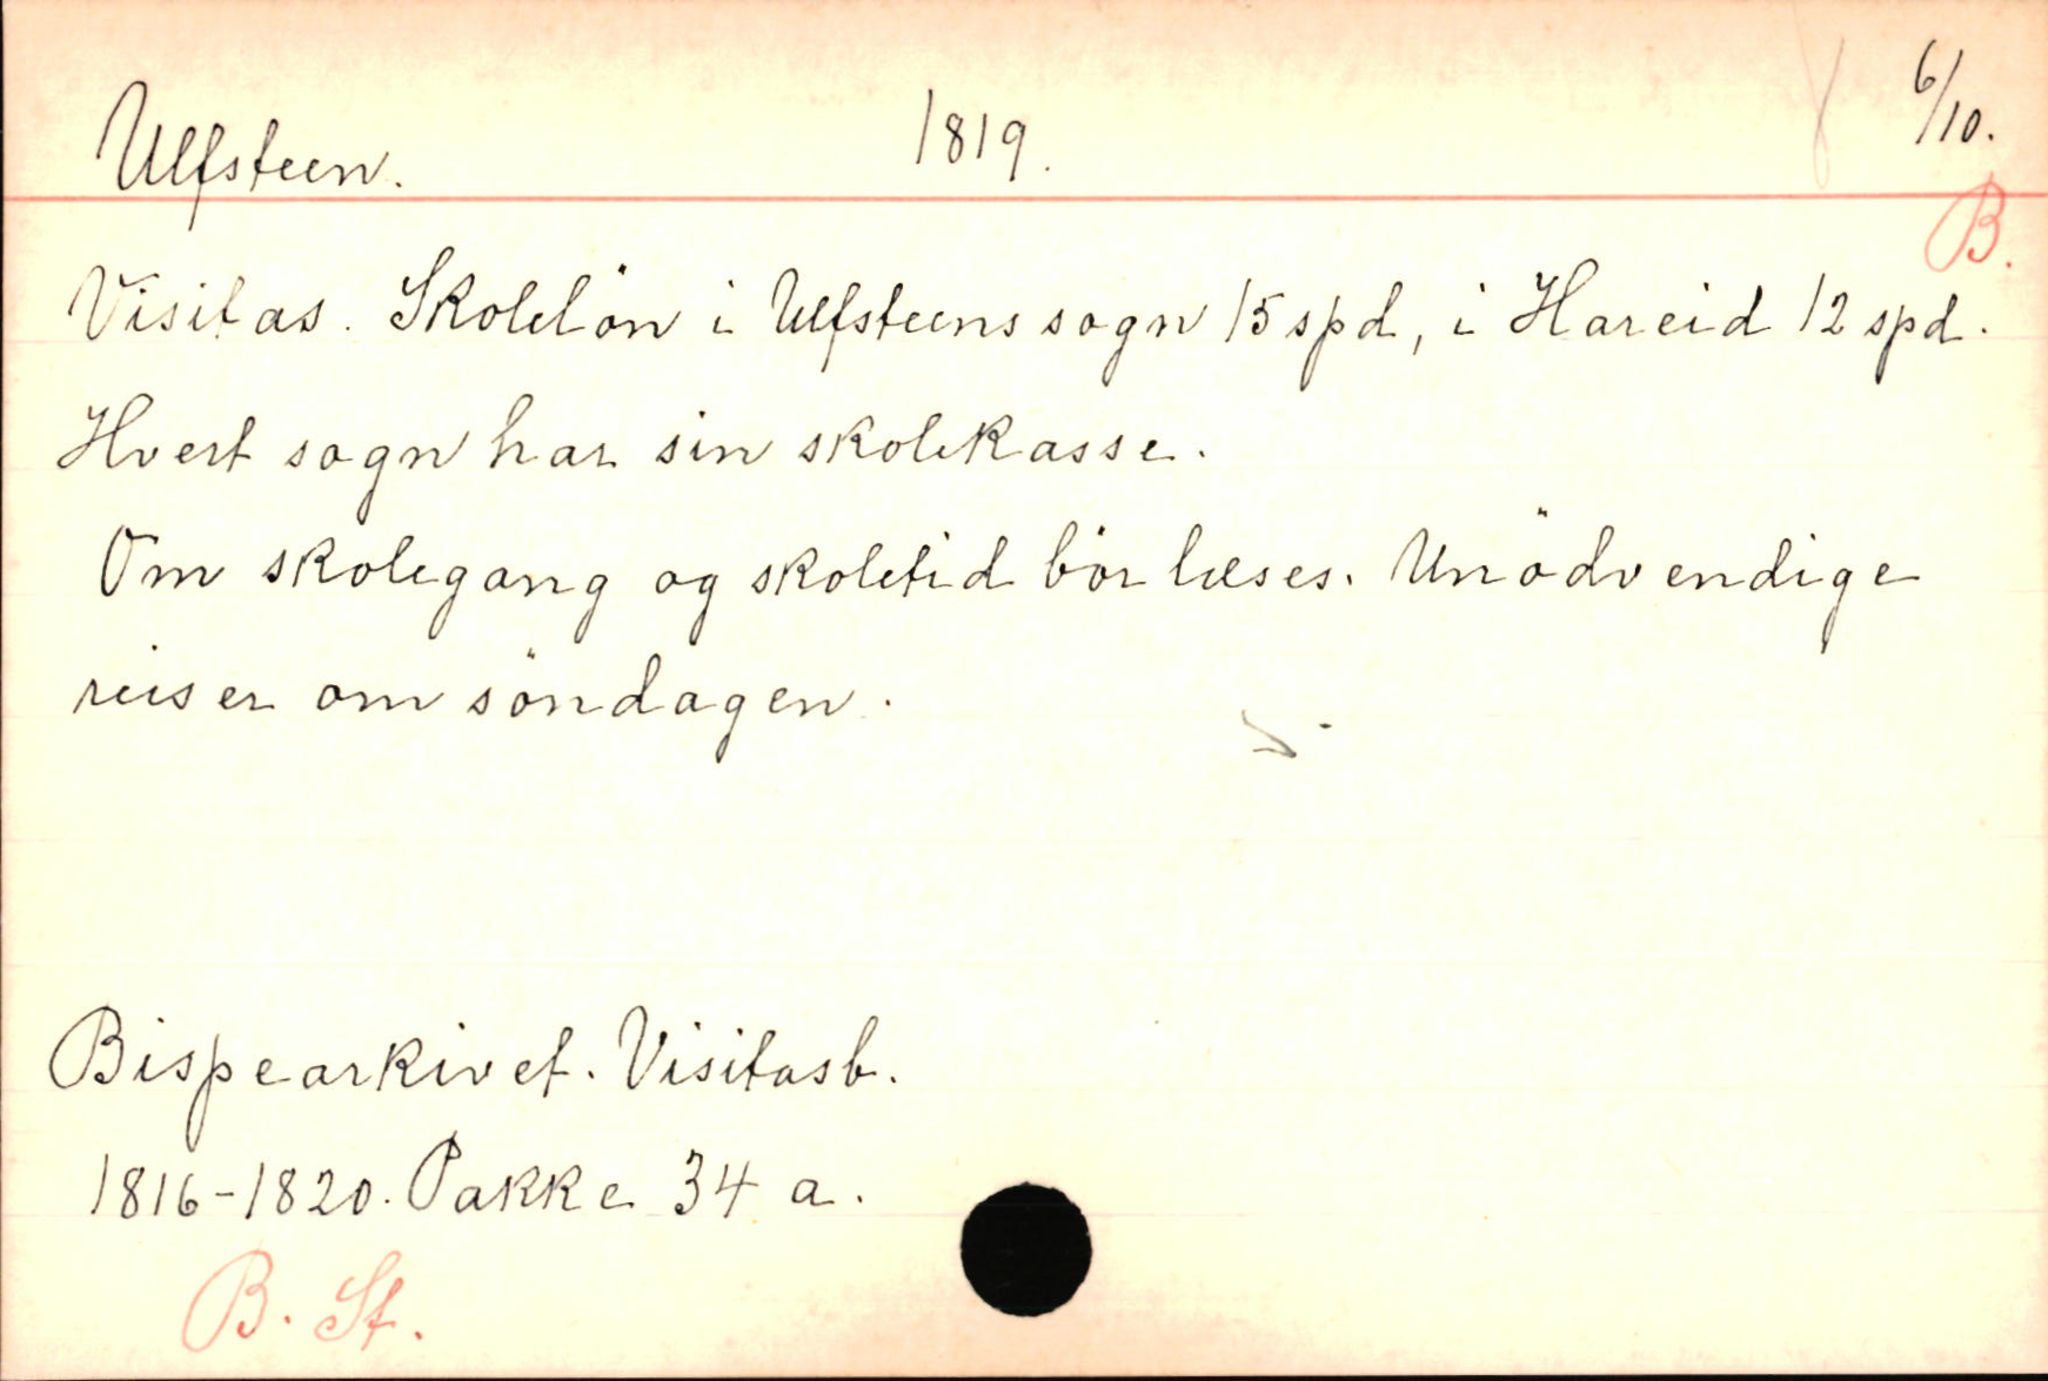 Ulfsteen. 1819. 6/10.
B.
Visitas. Skolelön i Ulfsteens sogn 15 spd, i Hareid 12 spd.
Hvert sogn har sin skolekasse.
Om skolegang og skoletid bör læses. Unödvendige
reiser om söndagen.
Bispearkivet. Visitasb.
1816-1820. Pakke 34 a.
B. St.